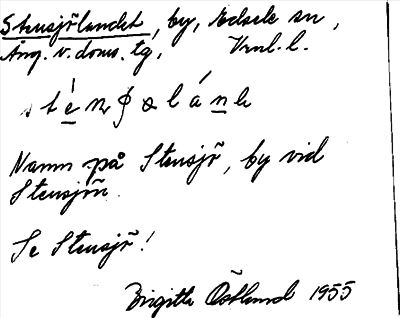 Stensjölandet, by, Edsele sn,
Ång. v. doms. tg, Vrnl. l.
Namn på Stensjö, by vid
Stensjön.
Se Stensjö!
Birgitta Östlund 1955